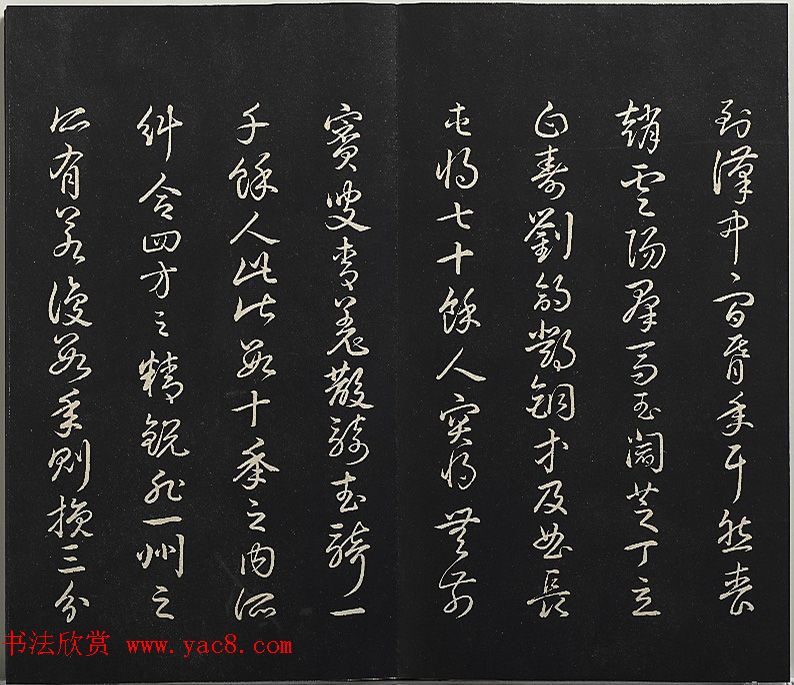 到漢中々間朞年耳然喪
趙雲陽群馬玉閻芝丁立
白壽劉郃鄧銅等及曲長
屯將七十餘人突將無前
賨叟青羌散騎武騎一
千餘人此皆數十年之內所
糾合四方之精銳非一州之
所有若復數年則損三分
书法欣赏 www.yac8.com